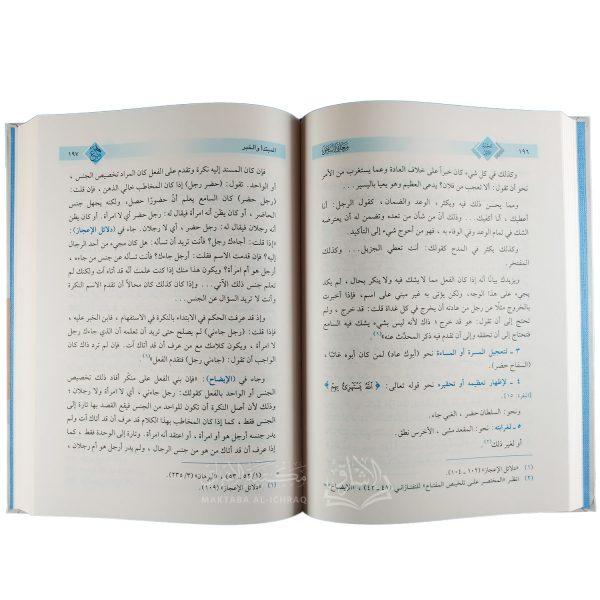 ١٩٦
معاني النحو
وكذلك في كل شيء كان خبراً على خلاف العادة وعما يستغرب من الأمر
نحو أن تقول: ألا تعجب من فلان؟ يدعي العظيم وهو يعيا باليسير...
ومما يحسن ذلك فيه ويكثر، الوعد والضمان، كقول الرجل: أنا
أعطيك، أنا أكفيك... وذلك أنّ من شأن من تعده وتضمن له أن يعترضه
الشك في تمام الوعد وفي الوفاء به، فهو من أحوج شيء إلى التأكيد.
وكذلك يكثر في المدح كقولك: أنت تعطي الجزيل... وكذلك
المفتخر.
ويزيدك بيانًا أنه إذا كان الفعل مما لا يشك فيه ولا ينكر بحال، لم يكد
يجيء على هذا الوجه، ولكن يؤتى به غير مبني على اسم، فإذا أخبرت
بالخروج مثلًا عن رجل من عادته أن يخرج في كل غداة قلت: قد خرج ولم
تحتج إلى أن تقول: هو قد خرج؛ ذاك لأنه ليس بشيء يشك فيه السامع
فتحتاج أن تحققه وإلى أن تقدم فيه ذكر المحدّث عنه»(١)
٣ ـ لتعجيل المسرة أو المساءة نحو (أبوك عاد) لمن كان أبوه غائبًا،
(السفاح حضر)
٤ ـ لإظهار تعظيمه أو تحقيره نحو قوله تعالى: ﴿اللَّهُ يَسْتَهْزِئُ بِهِمْ﴾
[البقرة: ١٥]
ونحو: السلطان حضر، الغبي جاء.
٥ ـ لغرابته: نحو: المقعد مشى، الأخرس نطق.
أو لغير ذلك(٢)
(١) «دلائل الإعجاز» (١٠٢ - ١٠٤)
(٢) انظر «المختصر على تلخيص المفتاح» للتفتازاني (٤٢ - ٤٨)، «الإيضاح»
المبتدأ والخبر
١٩٧
فإن كان المسند إليه نكرة وتقدم على الفعل كان المراد تخصيص الجنس،
أو الواحد. تقول: (حضر رجل) إذا كان المخاطب خالي الذهن، فإن قلت:
(رجل حضر) كان السامع يعلم أنّ حضورًا حصل، ولكنه يجهل جنس
الحاضر، أو كان يظن أنه امرأة فيقال له: رجل حضر أي لا امرأة. أو كان يظن
أنه رجلان فيقال له: رجل حضر، أي لا رجلان. جاء في (دلائل الإعجاز):
«إذا قلت: أجاءك رجل؟ فأنت تريد أن تسأله: هل كان مجيء من أحد الرجال
إليه؟ فإن قدمت الاسم فقلت: أرجل جاءك؟ فأنت تسأله عن جنس من جاءه،
أرجل هو أم امرأة؟ ويكون هذا منك إذا كنت علمت أنه قد أتاه آت ولكنك لم
تعلم جنس ذلك الآتي... وإذا كان كذلك كان محالًا أن تقدم الاسم النكرة
وأنت لا تريد السؤال عن الجنس...
وإذ قد عرفت الحكم في الابتداء بالنكرة في الاستفهام، فابن الخبر عليه،
فإن قلت: (رجل جاءني) لم يصلح حتى تريد أن تعلمه أن الذي جاءك رجل
لا امرأة، ويكون كلامك مع من عرف أن قد أتاك آت. فإن لم ترد ذاك كان
الواجب أن تقول: (جاءني رجل) فتقدم الفعل»(١)
وجاء في (الإيضاح): «فإن بني الفعل على منكّر أفاد ذلك تخصيص
الجنس أو الواحد بالفعل كقولك: رجل جاءني، أي لا امرأة ولا رجلان؛
وذلك لأن أصل النكرة أن تكون للواحد من الجنس فيقع القصد بها تارة إلى
الجنس فقط، كما إذا كان المخاطب بهذا الكلام قد عرف أن قد أتاك آت ولم
يدر جنسه أرجل هو أو امرأة، أو اعتقد أنه امرأة. وتارة إلى الوحدة فقط، كما
إذا عرف أن قد أتاك من هو من جنس الرجال، ولم يدر أرجل هو أم رجلان،
(١/ ٥٢ - ٥٣)، «البرهان» (٣/ ٢٣٥)
(١) «دلائل الإعجاز» (١٠٩)
MAKTABA AL-ICHRAQ